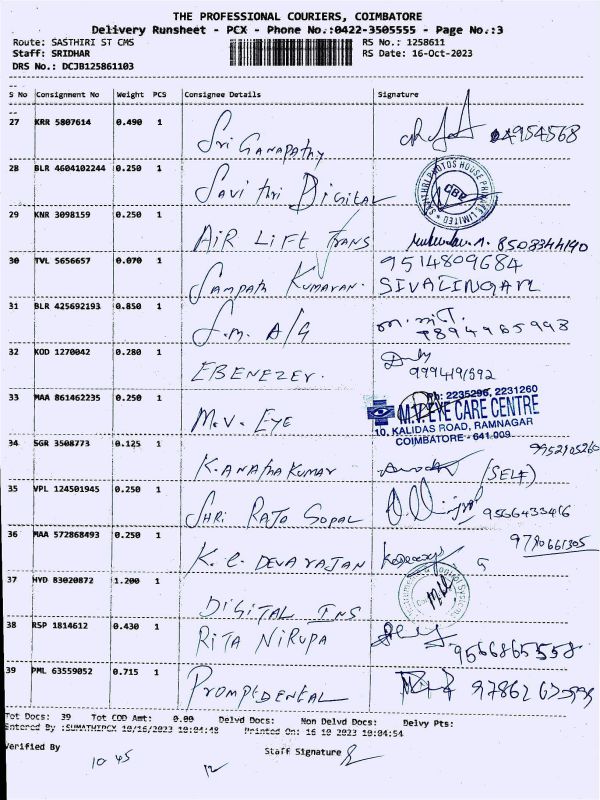 THE PROFESSIONAL COURIERS, COIMBATORE
Delivery Runsheet - PCX - Phone No.:0422-3505555 - Page No.:3
Route: SASTHIRI ST CMS RS No.: 1258611
Staff: SRIDHAR RS Date: 16-Oct-2023
DRS No.: DCJB125861103
S No Consignment No Weight PCS Consignee Details Signature
27 KRR 5807614 0.490 1 Sri GANAPATHY
28 BLR 4604102244 0.250 1 Savithri Digital
SANTHRI PHOTOS HOUSE PRIVATE LIMITED
CBE
29 KNR 3098159 0.250 1 AIR LIFT Trans 8508344190
30 TVL 5656657 0.070 1 Sampath Kumaran 9514809684
SIVALINGAM
31 BLR 425692193 0.850 1 S.m. A/G
32 KOD 1270042 0.280 1 EBENEZER.
33 MAA 861462235 0.250 1 M.V. EYE
Ph: 2235296, 2231260
M.V. EYE CARE CENTRE
10, KALIDAS ROAD, RAMNAGAR
COIMBATORE - 641 009
34 SGR 3508773 0.125 1 K.ANAtha Kumar (SELF) 9952105260
35 VPL 124501945 0.250 1 SHRi RAJA GOPAL 9566433416
36 MAA 572868493 0.250 1 K.C. DEVARAJAN 9790661305
37 HYD 83020872 1.200 1 DIGITAL INS
38 RSP 1814612 0.430 1 RITA NIRUPA 9566865558
39 PML 63559052 0.715 1 PROMPTDENTAL
Tot Docs: 39 Tot COD Amt: 0.00 Delvd Docs: Non Delvd Docs: Delvy Pts:
Entered By :SUMATHIPCX 10/16/2023 10:04:48 Printed On: 16 10 2023 10:04:54
Verified By Staff Signature
10 45 12